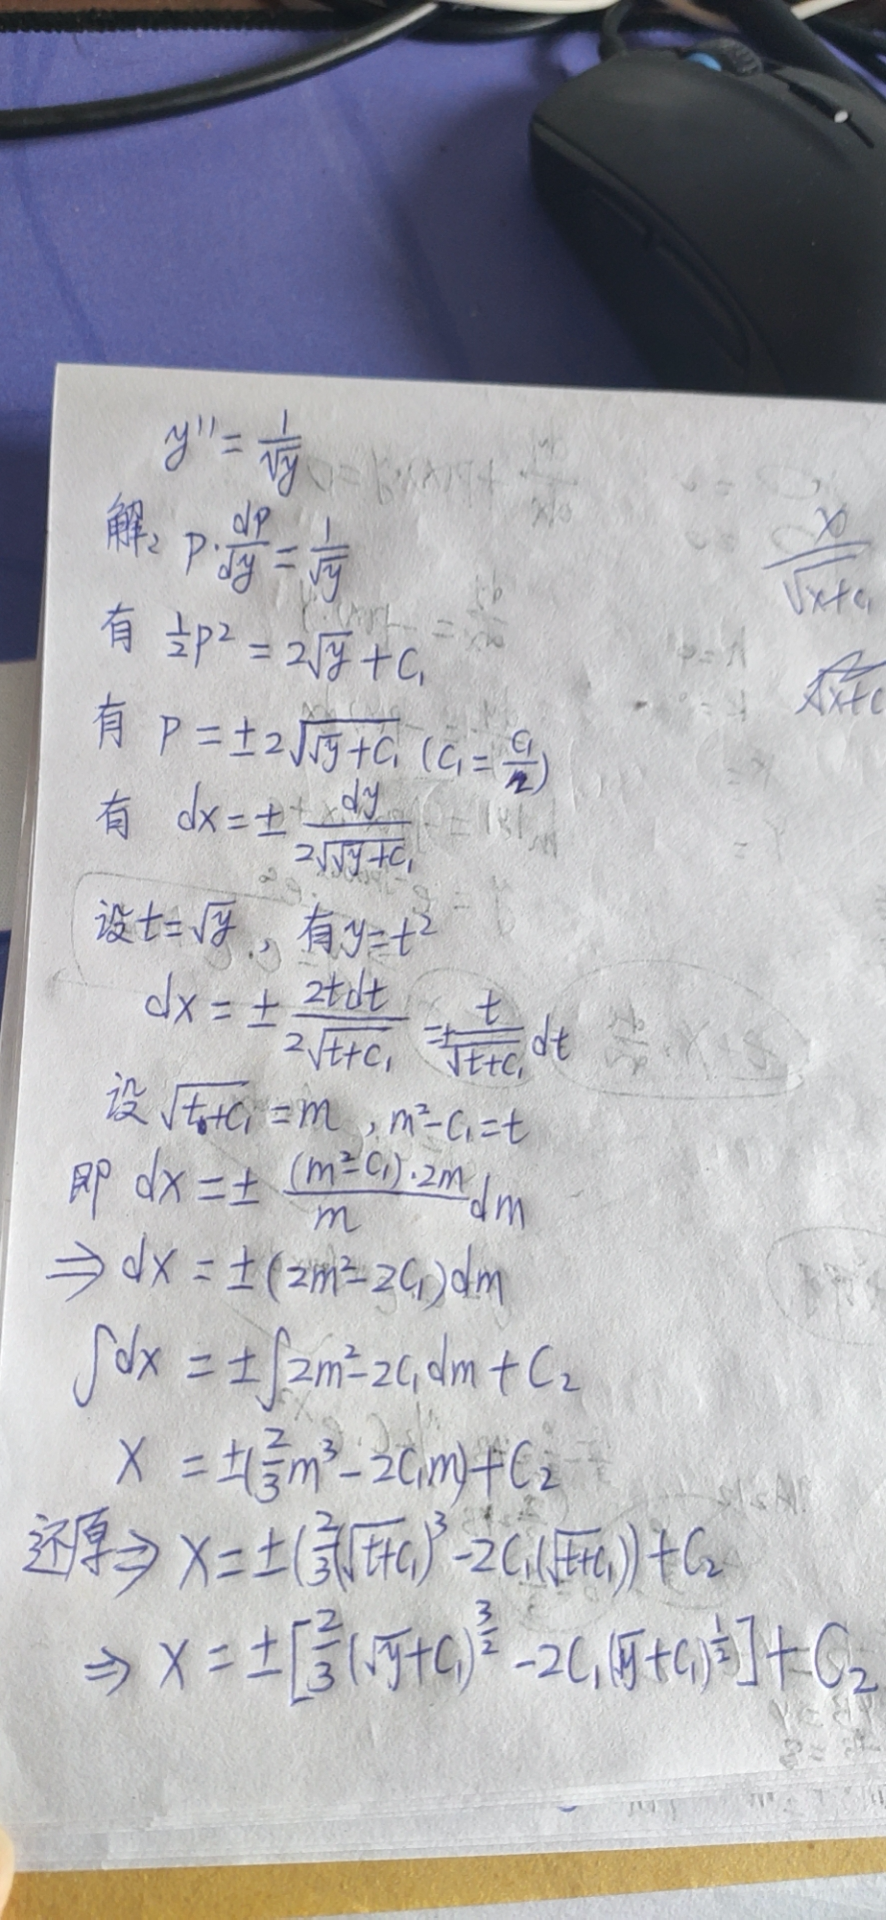 y'' = 1/√y
解: p·dp/dy = 1/√y
有 ½p² = 2√y + C₁
有 p = ±2√(√y+C₁) (C₁ = C₁/2)
有 dx = ± dy/(2√(√y+C₁))
设t=√y, 有y=t²
dx = ± 2tdt/(2√(t+C₁)) = ± t/√(t+C₁) dt
设 √(t+C₁) = m, m²-C₁=t
即 dx = ± (m²-C₁)·2m/m dm
⇒ dx = ±(2m²-2C₁)dm
∫dx = ±∫2m²-2C₁dm + C₂
x = ±(⅔m³-2C₁m)+C₂
还原⇒ x = ±(⅔(√(t+C₁))³-2C₁(√(t+C₁)))+C₂
⇒ x = ±[⅔(√y+C₁)^(3/2) -2C₁(√y+C₁)^(1/2)]+C₂
x/√(x+C₁